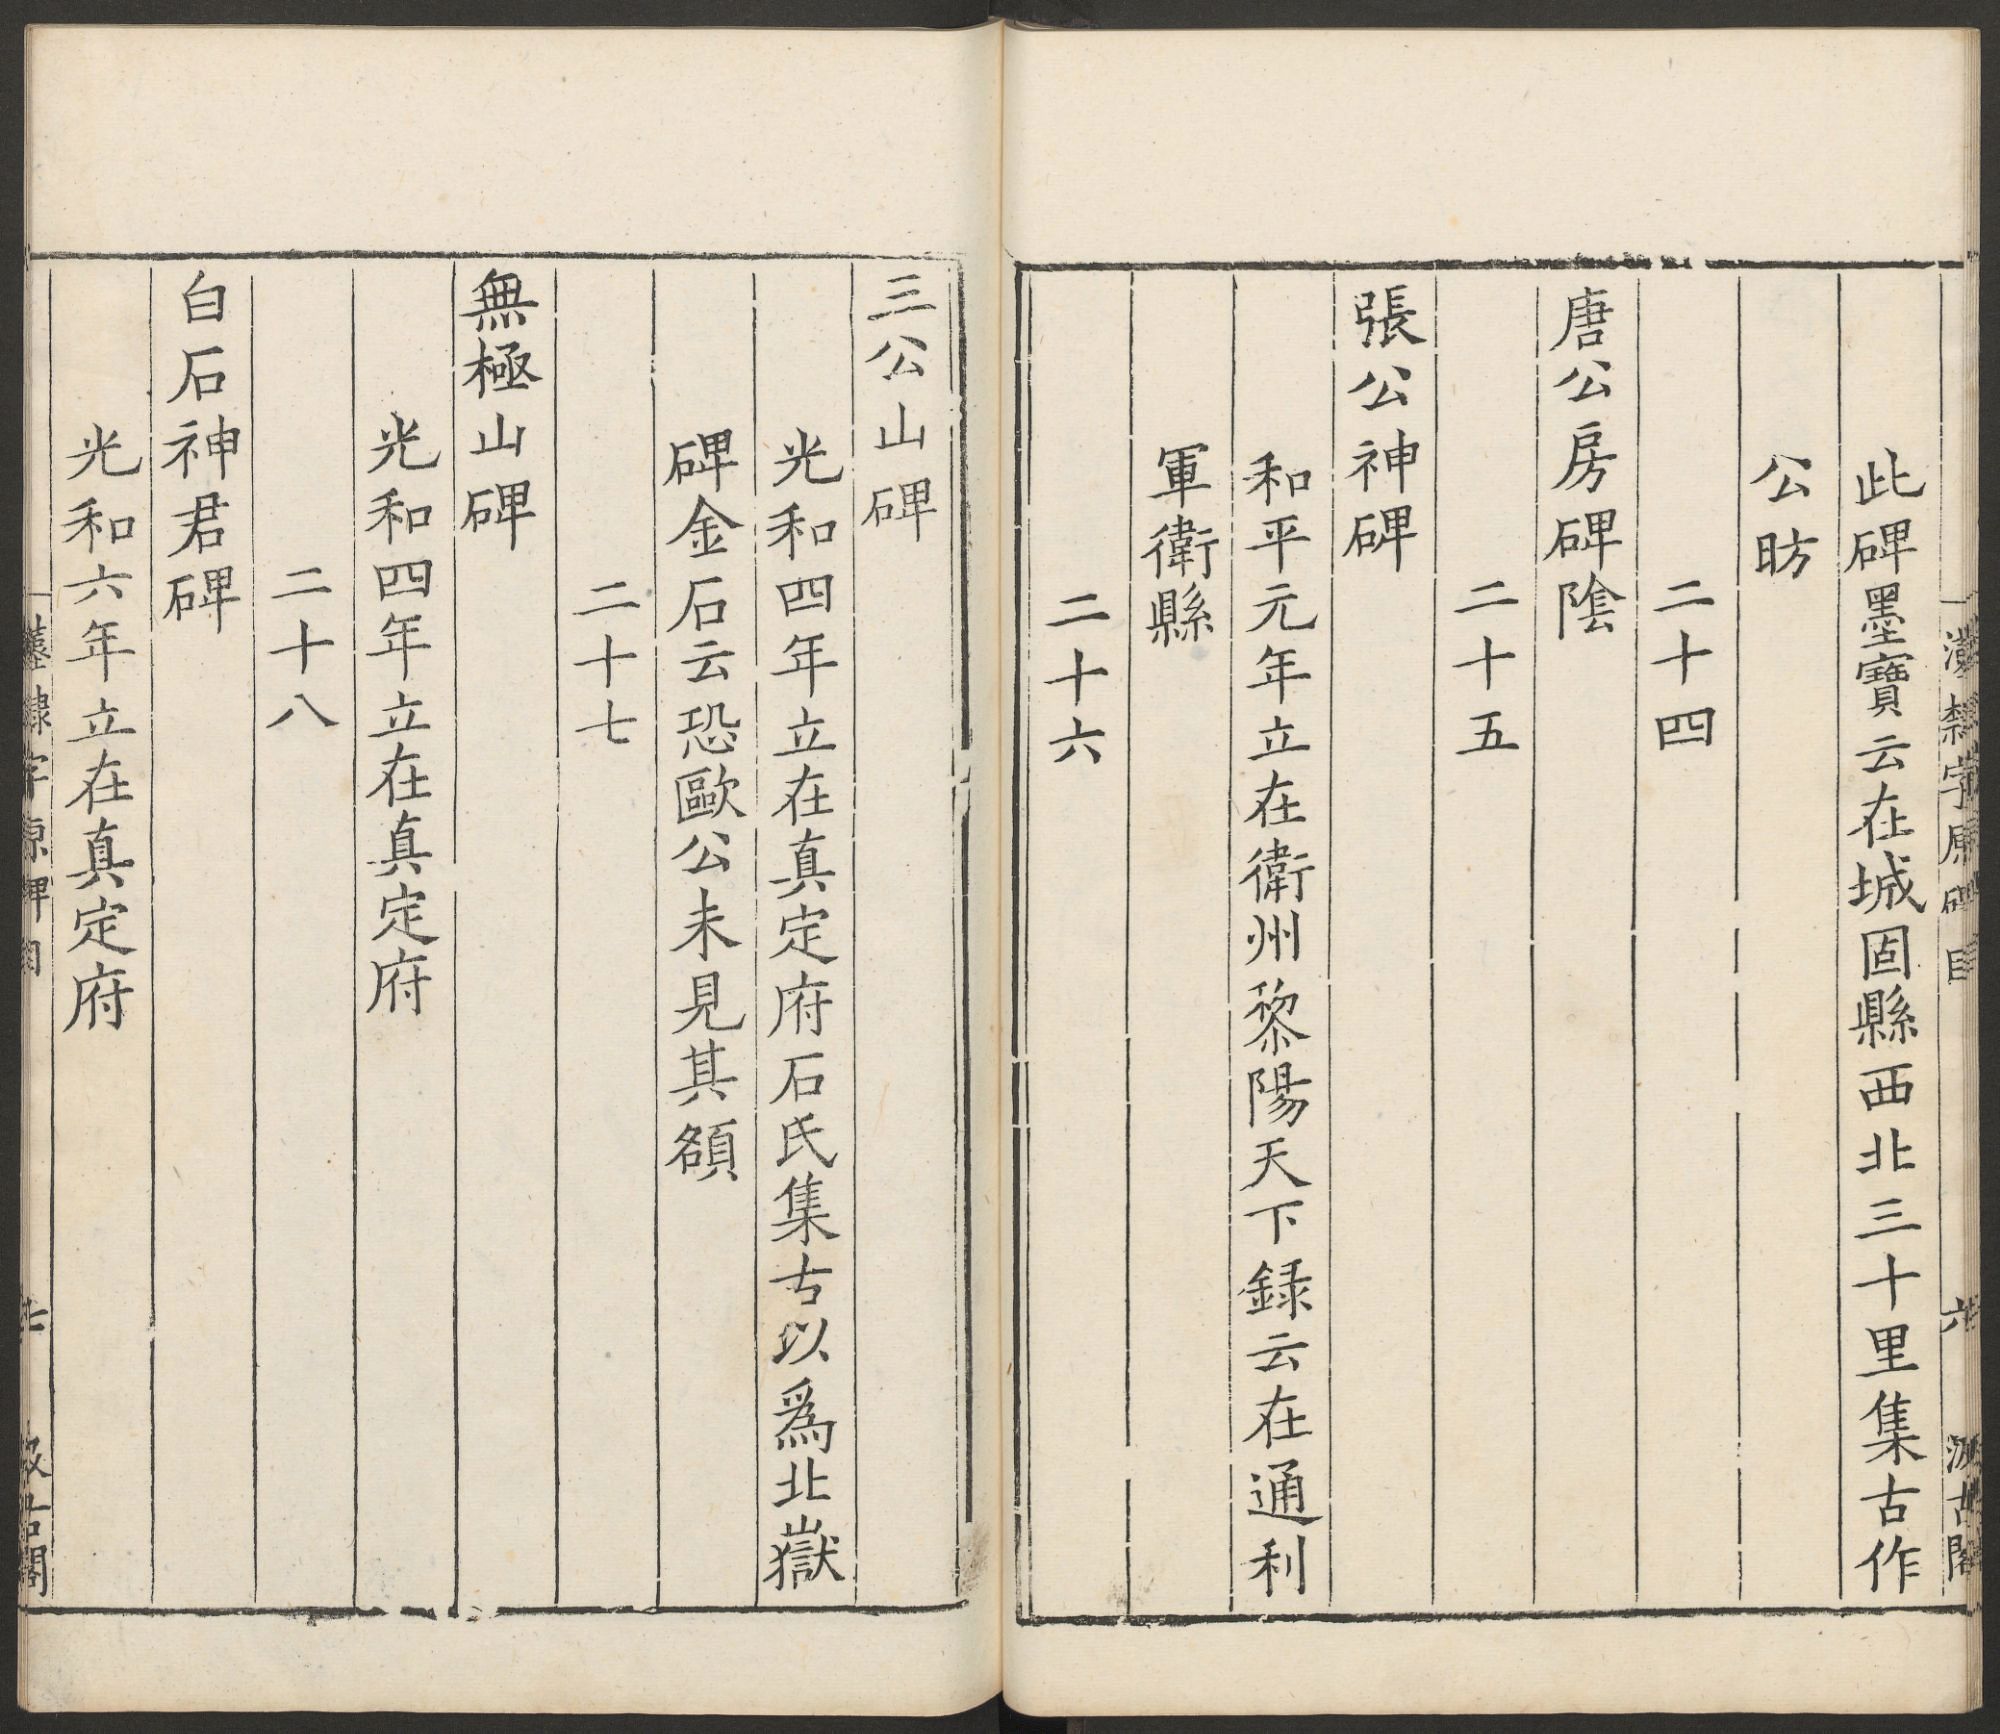 漢隸字原碑目
六
汲古閣
此碑墨寶云在城固縣西北三十里集古作
公昉
二十四
唐公房碑陰
二十五
張公神碑
和平元年立在衛州黎陽天下録云在通利
軍衛縣
二十六
三公山碑
光和四年立在真定府石氏集古以爲北嶽
碑金石云恐歐公未見其額
二十七
無極山碑
光和四年立在真定府
二十八
白石神君碑
光和六年立在真定府
隸字原碑目
七
汲古閣